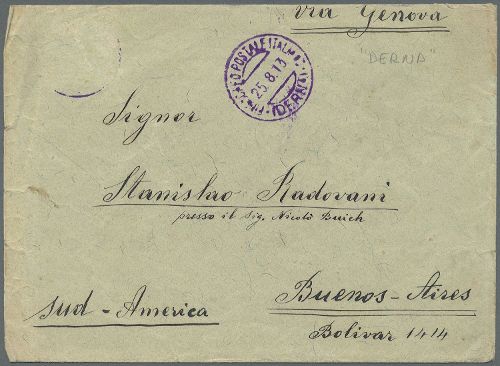 via Genova
"DERNA"
25.8.13
(DERNA)
Signor
Stanislao Radovani
presso il Sig. Nicolò Buich
Buenos-Aires
Sud-America
Bolivar 1414